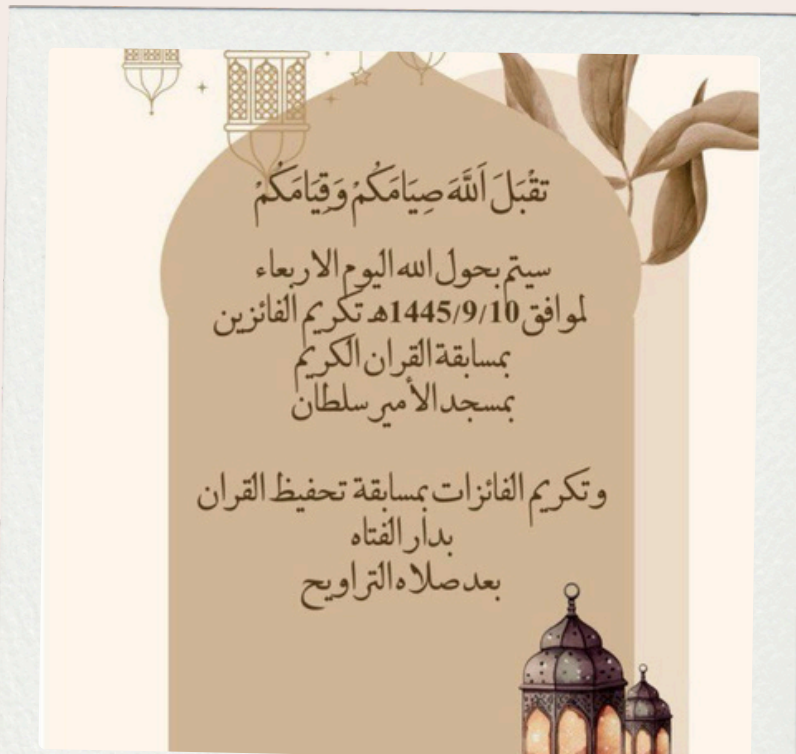 تقْبَلَ اَللَّهَ صِيَامَكُمْ وَقِيَامَكُمْ
سيتم بحول الله اليوم الاربعاء
لموافق 1445/9/10هـ تكريم الفائزين
بمسابقة القران الكريم
بمسجد الأمير سلطان
وتكريم الفائزات بمسابقة تحفيظ القران
بدار الفتاه
بعد صلاه التراويح